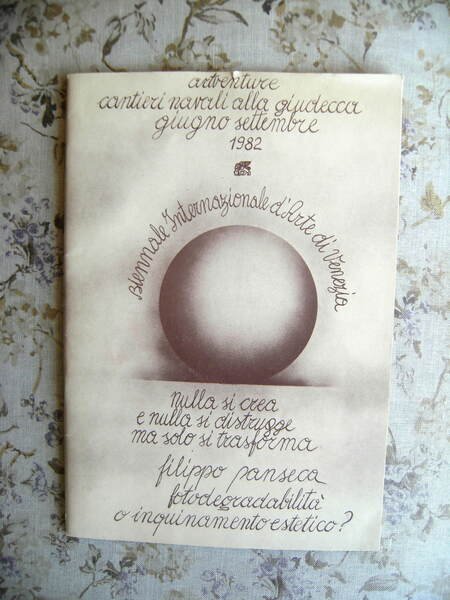 artventure
cantieri navali alla giudecca
giugno settembre
1982
Biennale Internazionale d'Arte di Venezia
nulla si crea
e nulla si distrugge
ma solo si trasforma
filippo panseca
fotodegradabilità
o inquinamento estetico?